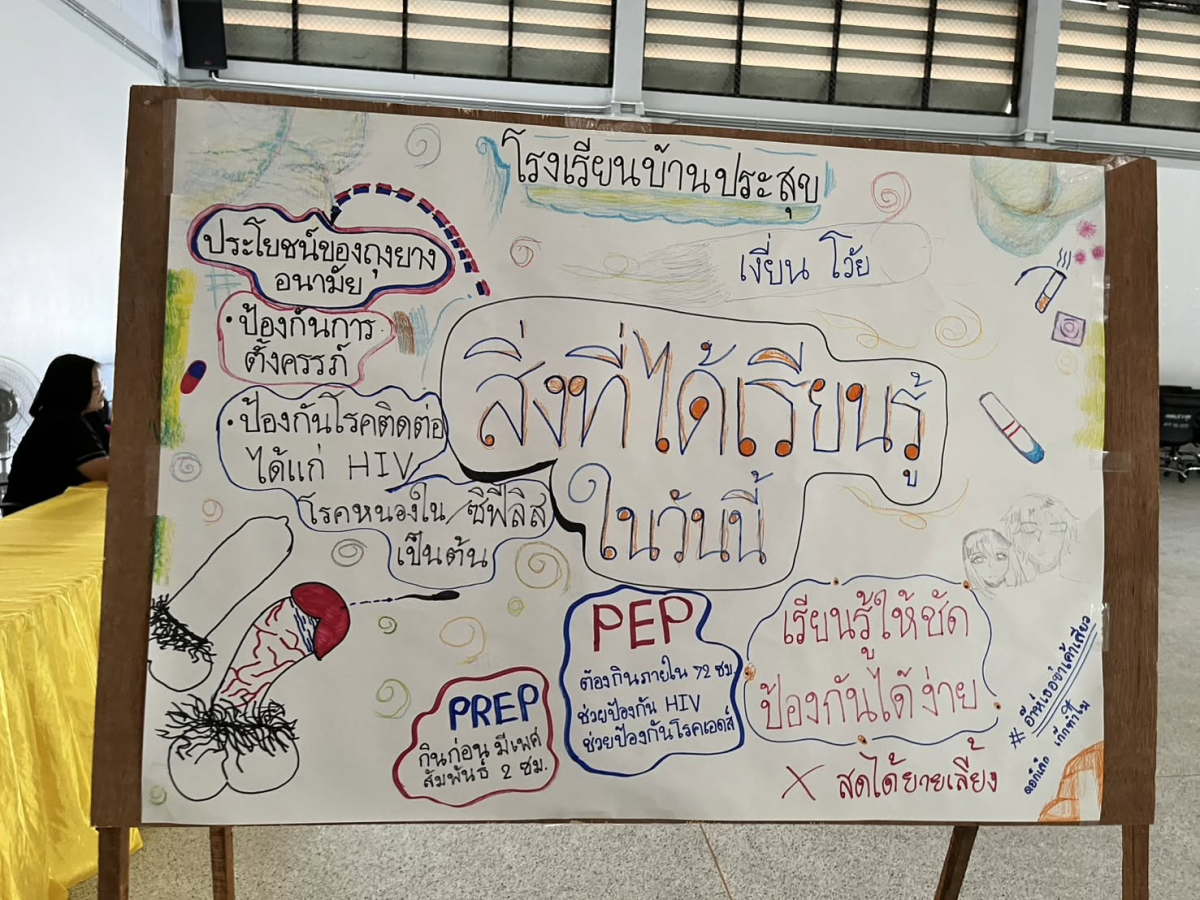 โรงเรียนบ้านประสุข
เงี่ยน โว้ย
ประโยชน์ของถุงยาง
อนามัย
• ป้องกันการ
ตั้งครรภ์
• ป้องกันโรคติดต่อ
ได้แก่ HIV
โรคหนองใน/ซิฟิลิส
เป็นต้น
สิ่งที่ได้เรียนรู้
ในวันนี้
PREP
กินก่อน มีเพศ
สัมพันธ์ 2 ชม.
PEP
ต้องกินภายใน 72 ชม
ช่วยป้องกัน HIV
ช่วยป้องกันโรคเอดส์
เรียนรู้ให้ชัด
ป้องกันได้ง่าย
X สดได้ยายเลี้ยง